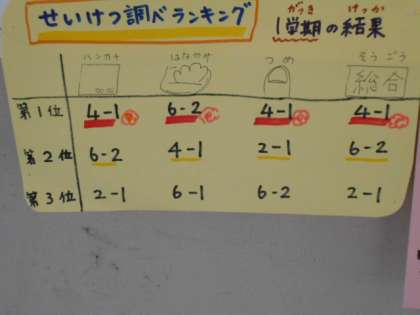 せいけつ調べランキング
がっき けっか
1学期の結果
ハンカチ はなかみ つめ そうごう
総合
第1位 4-1 6-2 4-1 4-1
第2位 6-2 4-1 2-1 6-2
第3位 2-1 6-1 6-2 2-1